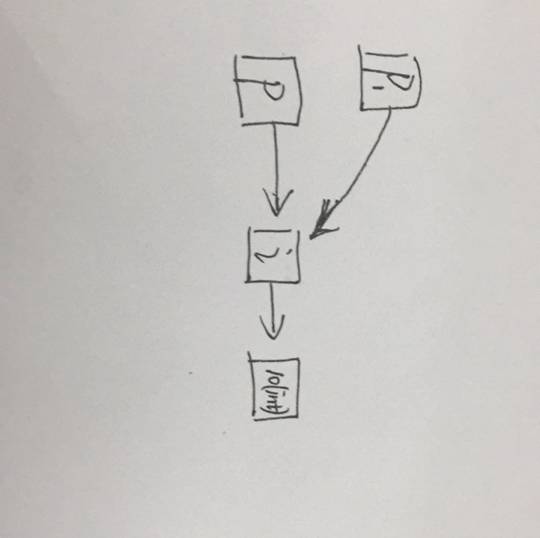 P
P1
i
10(int)